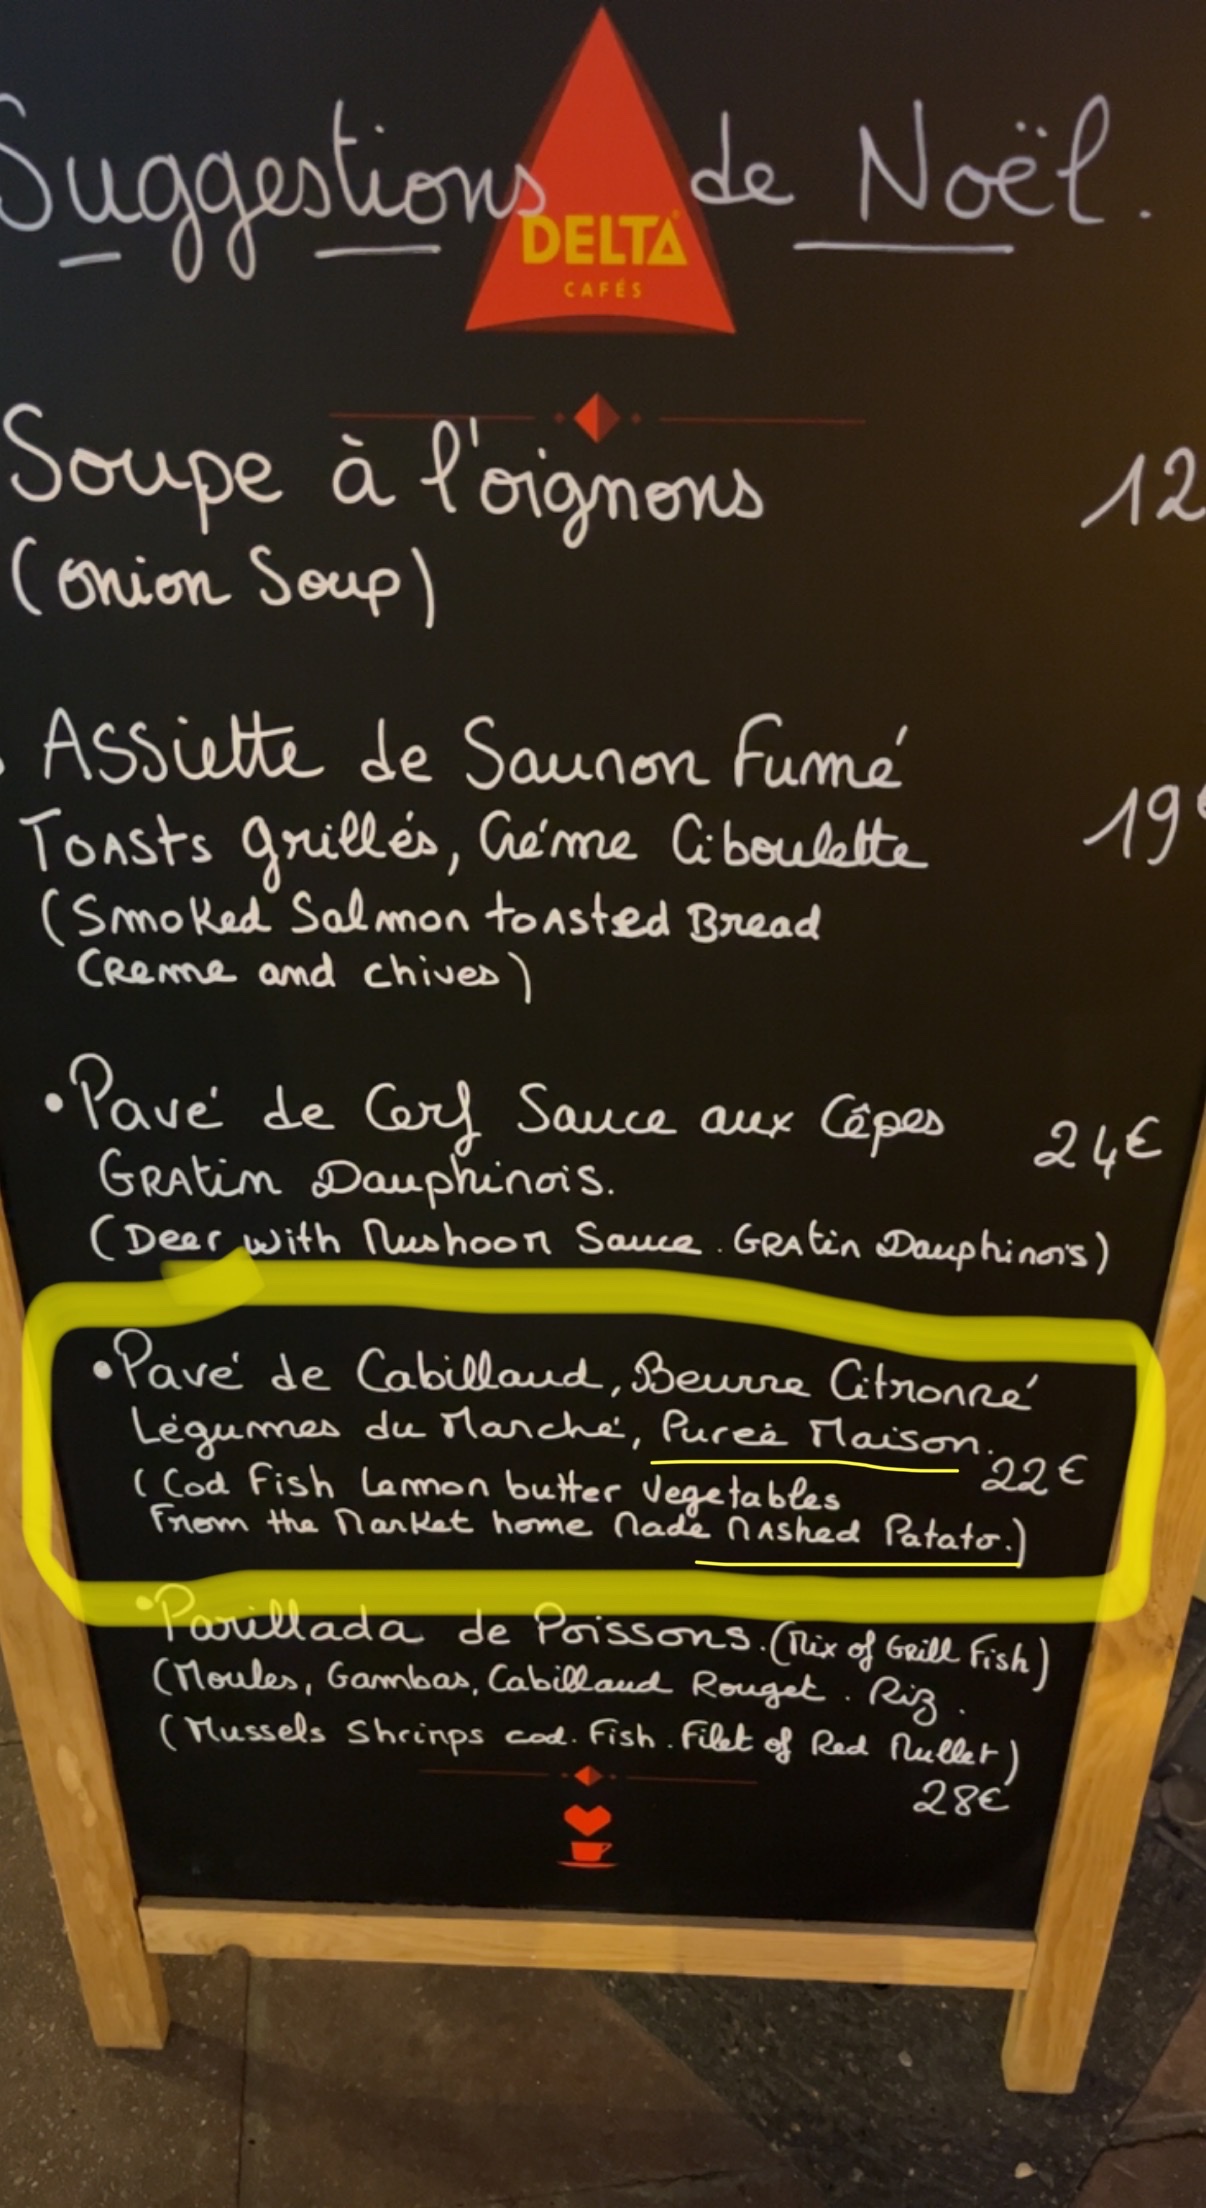 Suggestions de Noël.
DELTA
CAFÉS
Soupe à l'oignons 12
(Onion Soup)
Assiette de Saunon Fumé
Toasts grillés, Créme Ciboulette 19€
(Smoked Salmon toasted Bread
Creme and chives)
•Pavé de Cerf Sauce aux Cêpes 24€
Gratin Dauphinois.
(Deer with Mushoon Sauce. Gratin Dauphinois)
•Pavé de Cabillaud, Beurre Citronné
Légumes du Marché, Pureè Maison. 22€
(Cod Fish Lemon butter Vegetables
From the Market home Made Mashed Patato.)
•Parillada de Poissons. (Mix of Grill Fish)
(Moules, Gambas, Cabillaud Rouget. Riz.
(Mussels Shrimps cod. Fish. Filet of Red Mullet)
28€